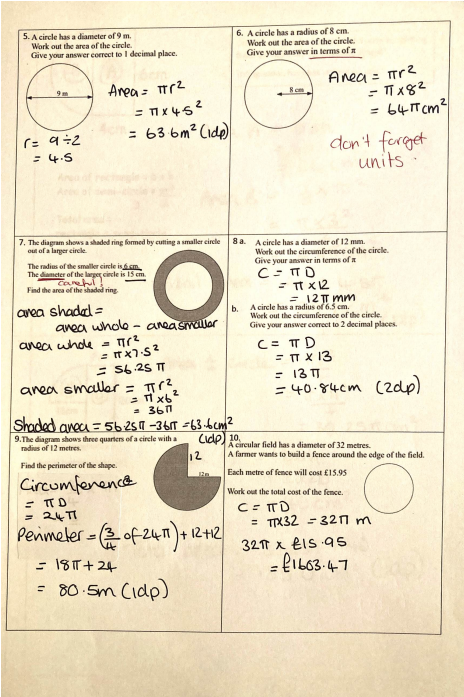 5. A circle has a diameter of 9 m.
Work out the area of the circle.
Give your answer correct to 1 decimal place.
9 m
Area = πr²
= π×4·5²
= 63·6m² (1dp)
r = 9÷2
= 4·5
6. A circle has a radius of 8 cm.
Work out the area of the circle.
Give your answer in terms of π
8 cm
Area = πr²
= π×8²
= 64πcm²
don't forget
units.
7. The diagram shows a shaded ring formed by cutting a smaller circle
out of a larger circle.
The radius of the smaller circle is 6 cm.
The diameter of the larger circle is 15 cm.
careful!
Find the area of the shaded ring.
area shaded =
area whole - area smaller
area whole = πr²
= π×7·5²
= 56·25π
area smaller = πr²
= π×6²
= 36π
Shaded area = 56·25π - 36π = 63·6cm²
(1dp)
8 a. A circle has a diameter of 12 mm.
Work out the circumference of the circle.
Give your answer in terms of π
C = πD
= π×12
= 12πmm
b. A circle has a radius of 6.5 cm.
Work out the circumference of the circle.
Give your answer correct to 2 decimal places.
C = πD
= π×13
= 13π
= 40·84cm (2dp)
9. The diagram shows three quarters of a circle with a
radius of 12 metres.
Find the perimeter of the shape.
12
12m
Circumference
= πD
= 24π
Perimeter = (3/4 of 24π) + 12+12
= 18π + 24
= 80·5m (1dp)
10.
A circular field has a diameter of 32 metres.
A farmer wants to build a fence around the edge of the field.
Each metre of fence will cost £15.95
Work out the total cost of the fence.
C = πD
= π×32 = 32π m
32π × £15·95
= £1603·47